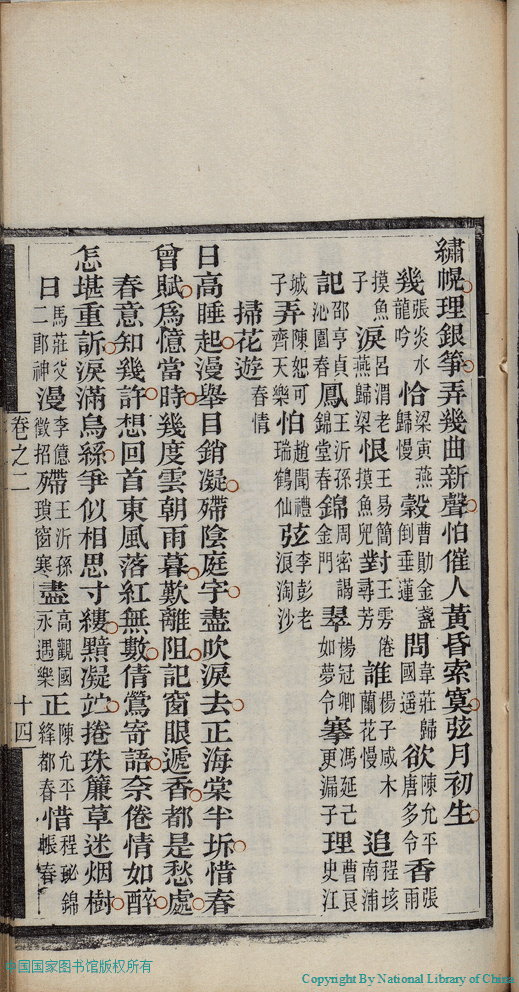 繡幌理銀箏弄幾曲新聲怕催人黃昏索寞弦月初生
幾張炎水龍吟恰梁寅燕歸慢縠曹勛金盞倒垂蓮問韋莊歸國遙欲陳允平唐多令香張雨
摸魚子淚呂渭老燕歸梁恨王易簡摸魚兒對王雱倦尋芳誰楊子咸木蘭花慢追程垓南浦
記邵亨貞沁園春鳳王沂孫錦堂春錦周密謁金門翠楊冠卿如夢令搴馮延己更漏子理曹良史江
城子弄陳恕可齊天樂怕趙聞禮瑞鶴仙弦李彭老浪淘沙
掃花遊春情
日高睡起漫舉目銷凝殢陰庭宇盡吹淚去正海棠半坼惜春
曾賦爲憶當時幾度雲朝雨暮歎離阻記窗眼遞香都是愁處
春意知幾許想回首東風落紅無數倩鶯寄語奈倦情如醉
怎堪重訴淚滿烏絲爭似相思寸縷黯凝竚捲珠簾草迷烟樹
日馬莊父二郎神漫李億徵招殢王沂孫瑣窗寒盡高觀國永遇樂正陳允平絳都春惜程珌錦帳春
卷之二
十四
中国国家图书馆版权所有
Copyright By National Library of China